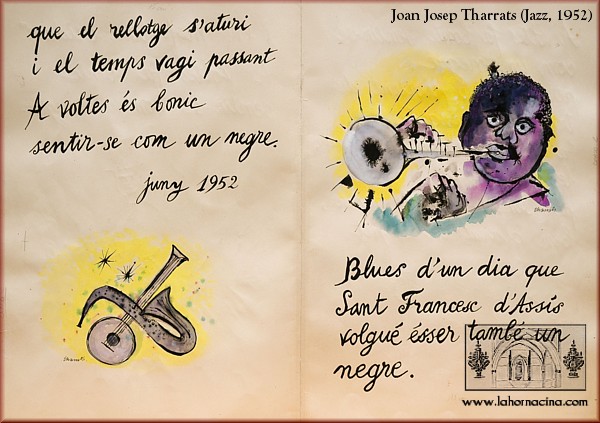 que el rellotge s'aturi
i el temps vagi passant
A voltes és bonic
sentir-se com un negre.
juny 1952
Joan Josep Tharrats (Jazz, 1952)
Blues d'un dia que
Sant Francesc d'Assís
volgué ésser també un
negre.
www.lahornacina.com